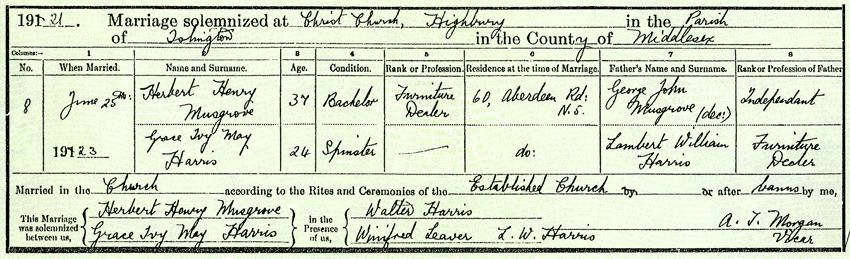 1921. Marriage solemnized at Christ Church, Highbury in the Parish
of Islington in the County of Middlesex
Columns:— 1 2 3 4 5 6 7 8
No. When Married. Name and Surname. Age. Condition. Rank or Profession. Residence at the time of Marriage. Father's Name and Surname. Rank or Profession of Father
8 June 25th: Herbert Henry Musgrove 37 Bachelor Furniture Dealer 60, Aberdeen Rd: N.5. George John Musgrove (dec:) Independant
1923 Grace Ivy May Harris 24 Spinster — do: Lambert William Harris Furniture Dealer
Married in the Church according to the Rites and Ceremonies of the Established Church by, or after banns by me,
This Marriage was solemnized between us, Herbert Henry Musgrove Grace Ivy May Harris in the Presence of us, Walter Harris Winifred Leaver L. W. Harris A. T. Morgan Vicar